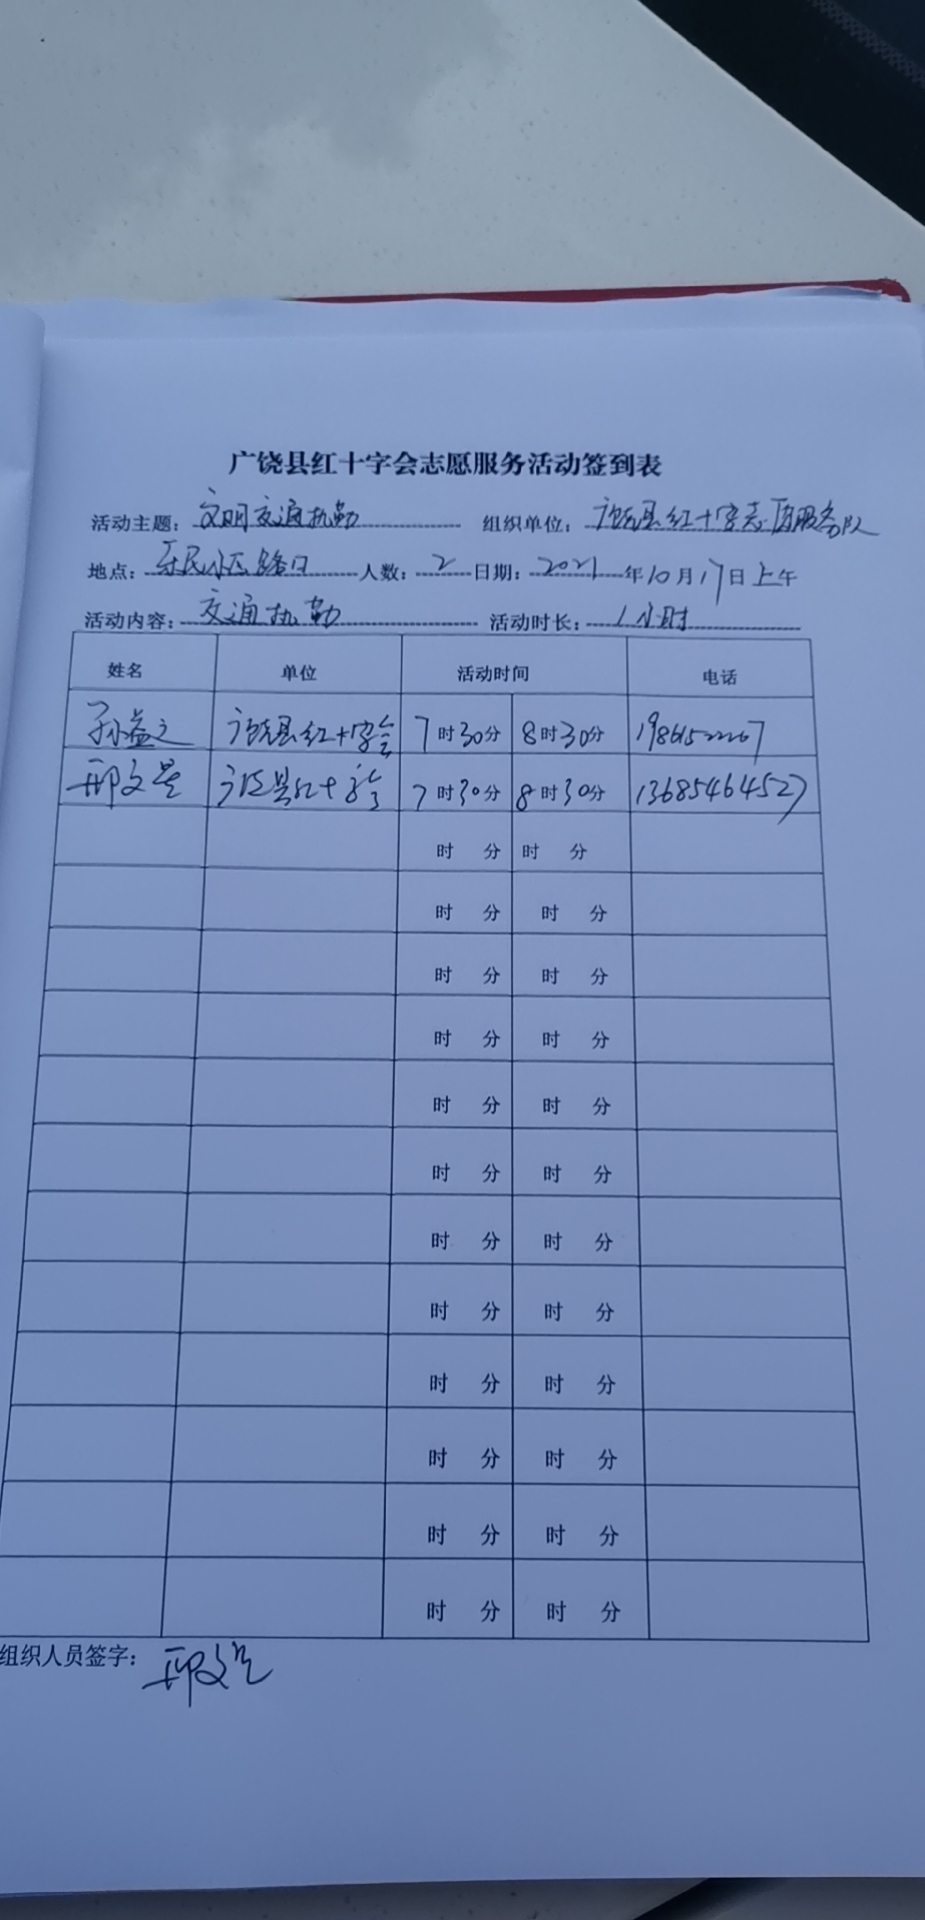 广饶县红十字会志愿服务活动签到表
活动主题：文明交通执勤 组织单位：广饶县红十字志愿服务队
地点：乐民小区路口 人数：2 日期：2021年10月17日上午
活动内容：交通执勤 活动时长：1小时
姓名 单位 活动时间 电话
孙益之 广饶县红十字会 7时30分 8时30分
邢文 广饶县红十字会 7时30分 8时30分 13685464527
时 分 时 分
时 分 时 分
时 分 时 分
时 分 时 分
时 分 时 分
时 分 时 分
时 分 时 分
时 分 时 分
时 分 时 分
时 分 时 分
时 分 时 分
时 分 时 分
组织人员签字：邢文